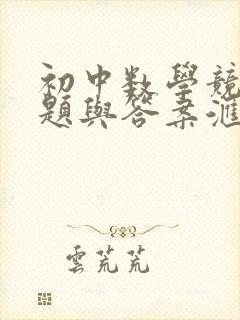 初中數學競
題與答案滙
雲荒荒